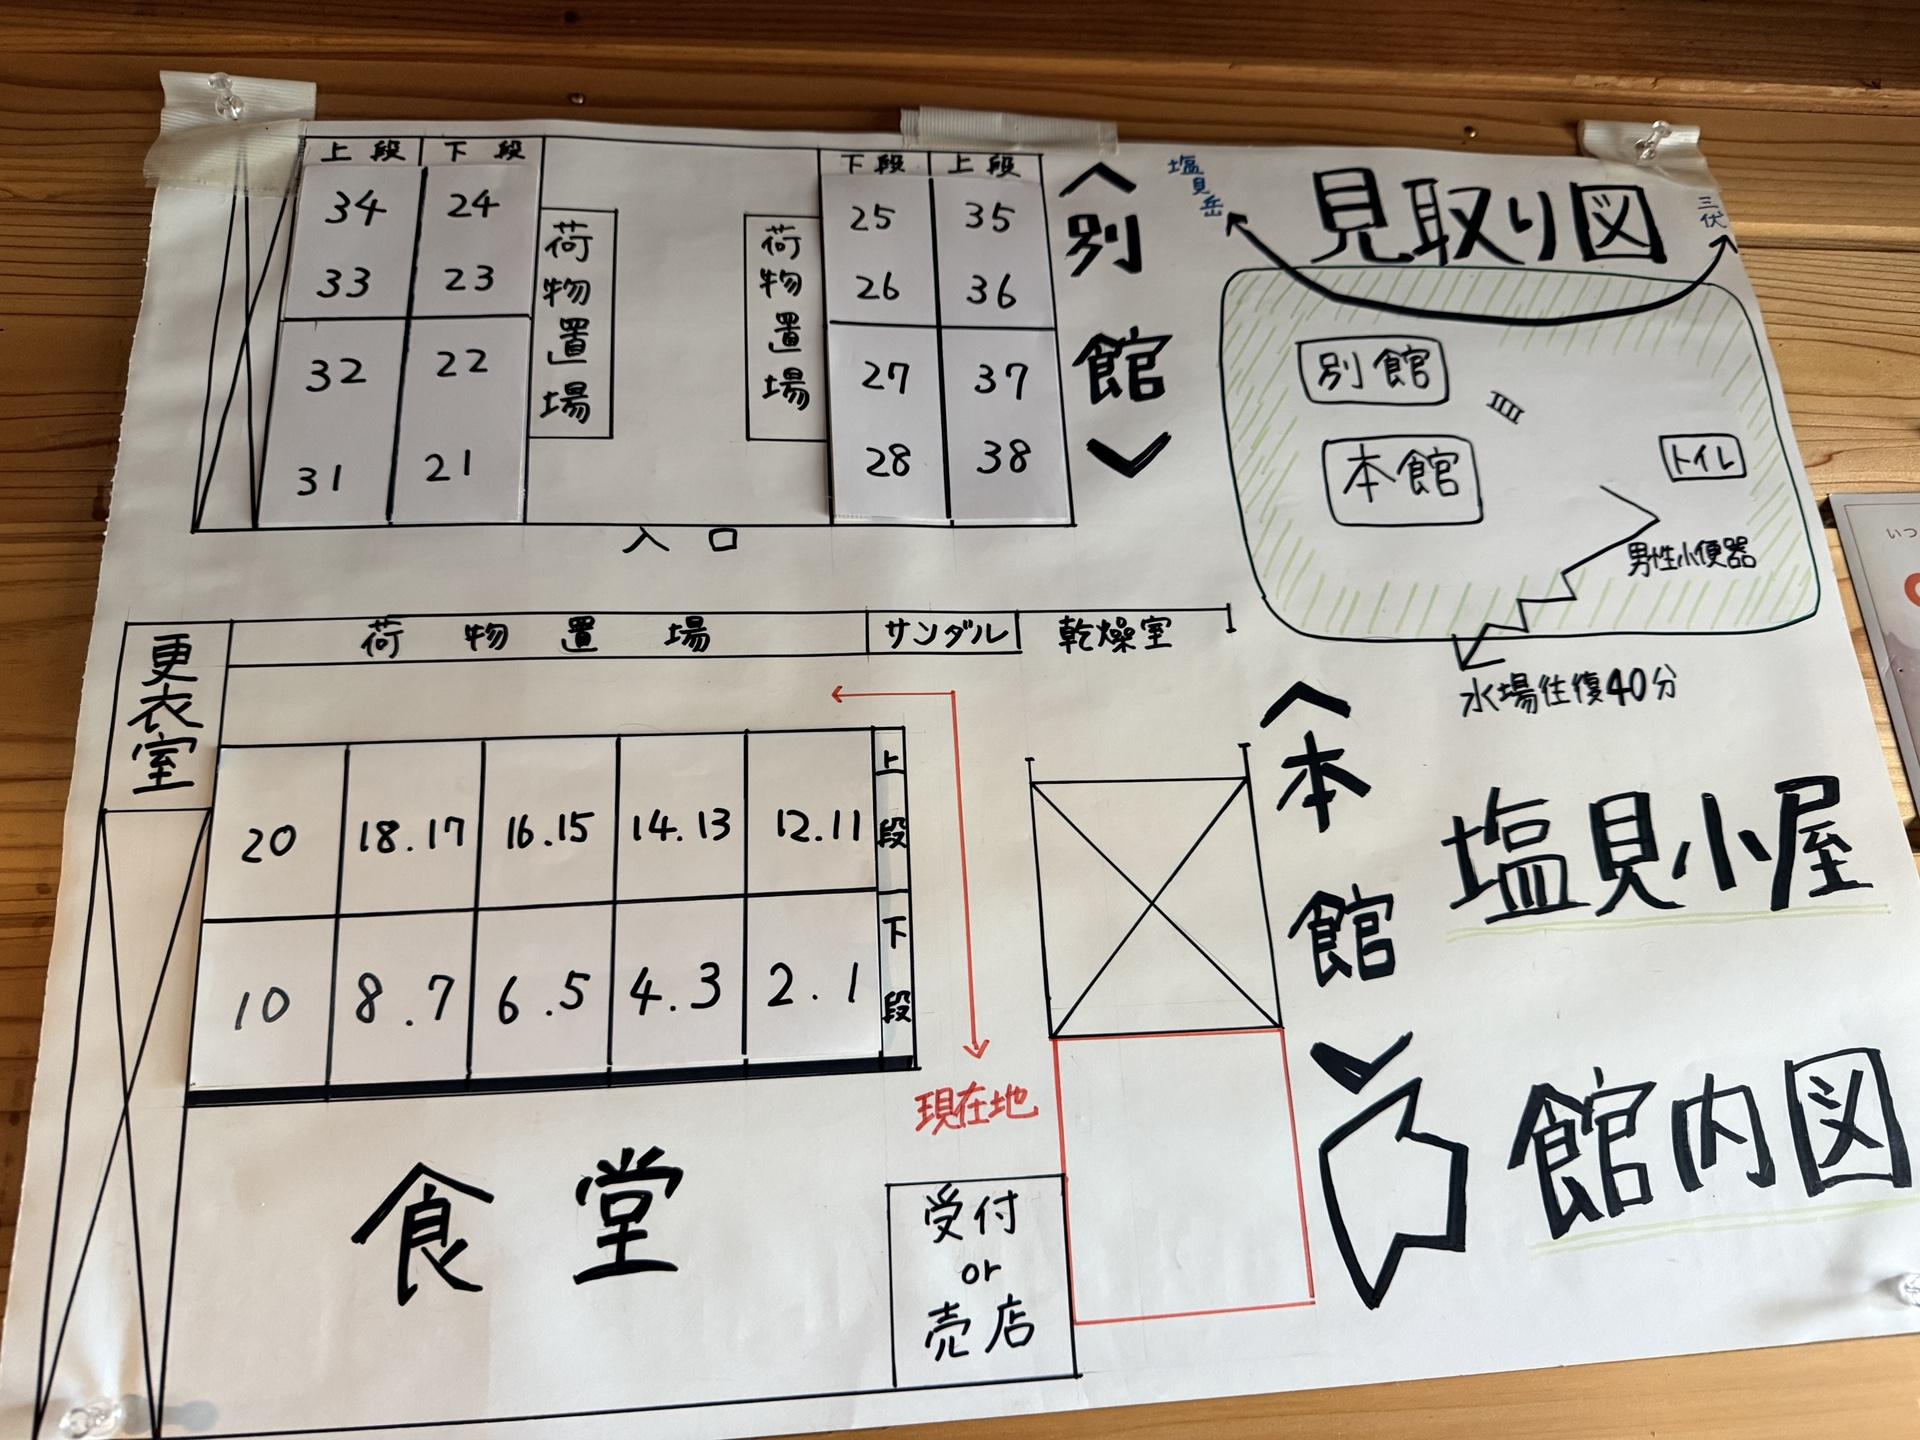 見取り図
塩見岳
三伏
別館
本館
トイレ
男性小便器
水場往復40分
塩見小屋
館内図
<別館>
上段 下段
34 24
33 23
32 22
31 21
荷物置場
荷物置場
下段 上段
25 35
26 36
27 37
28 38
入口
<本館>
更衣室
荷物置場
サンダル
乾燥室
上段
20 18.17 16.15 14.13 12.11
下段
10 8.7 6.5 4.3 2.1
現在地
食堂
受付
or
売店
いつ